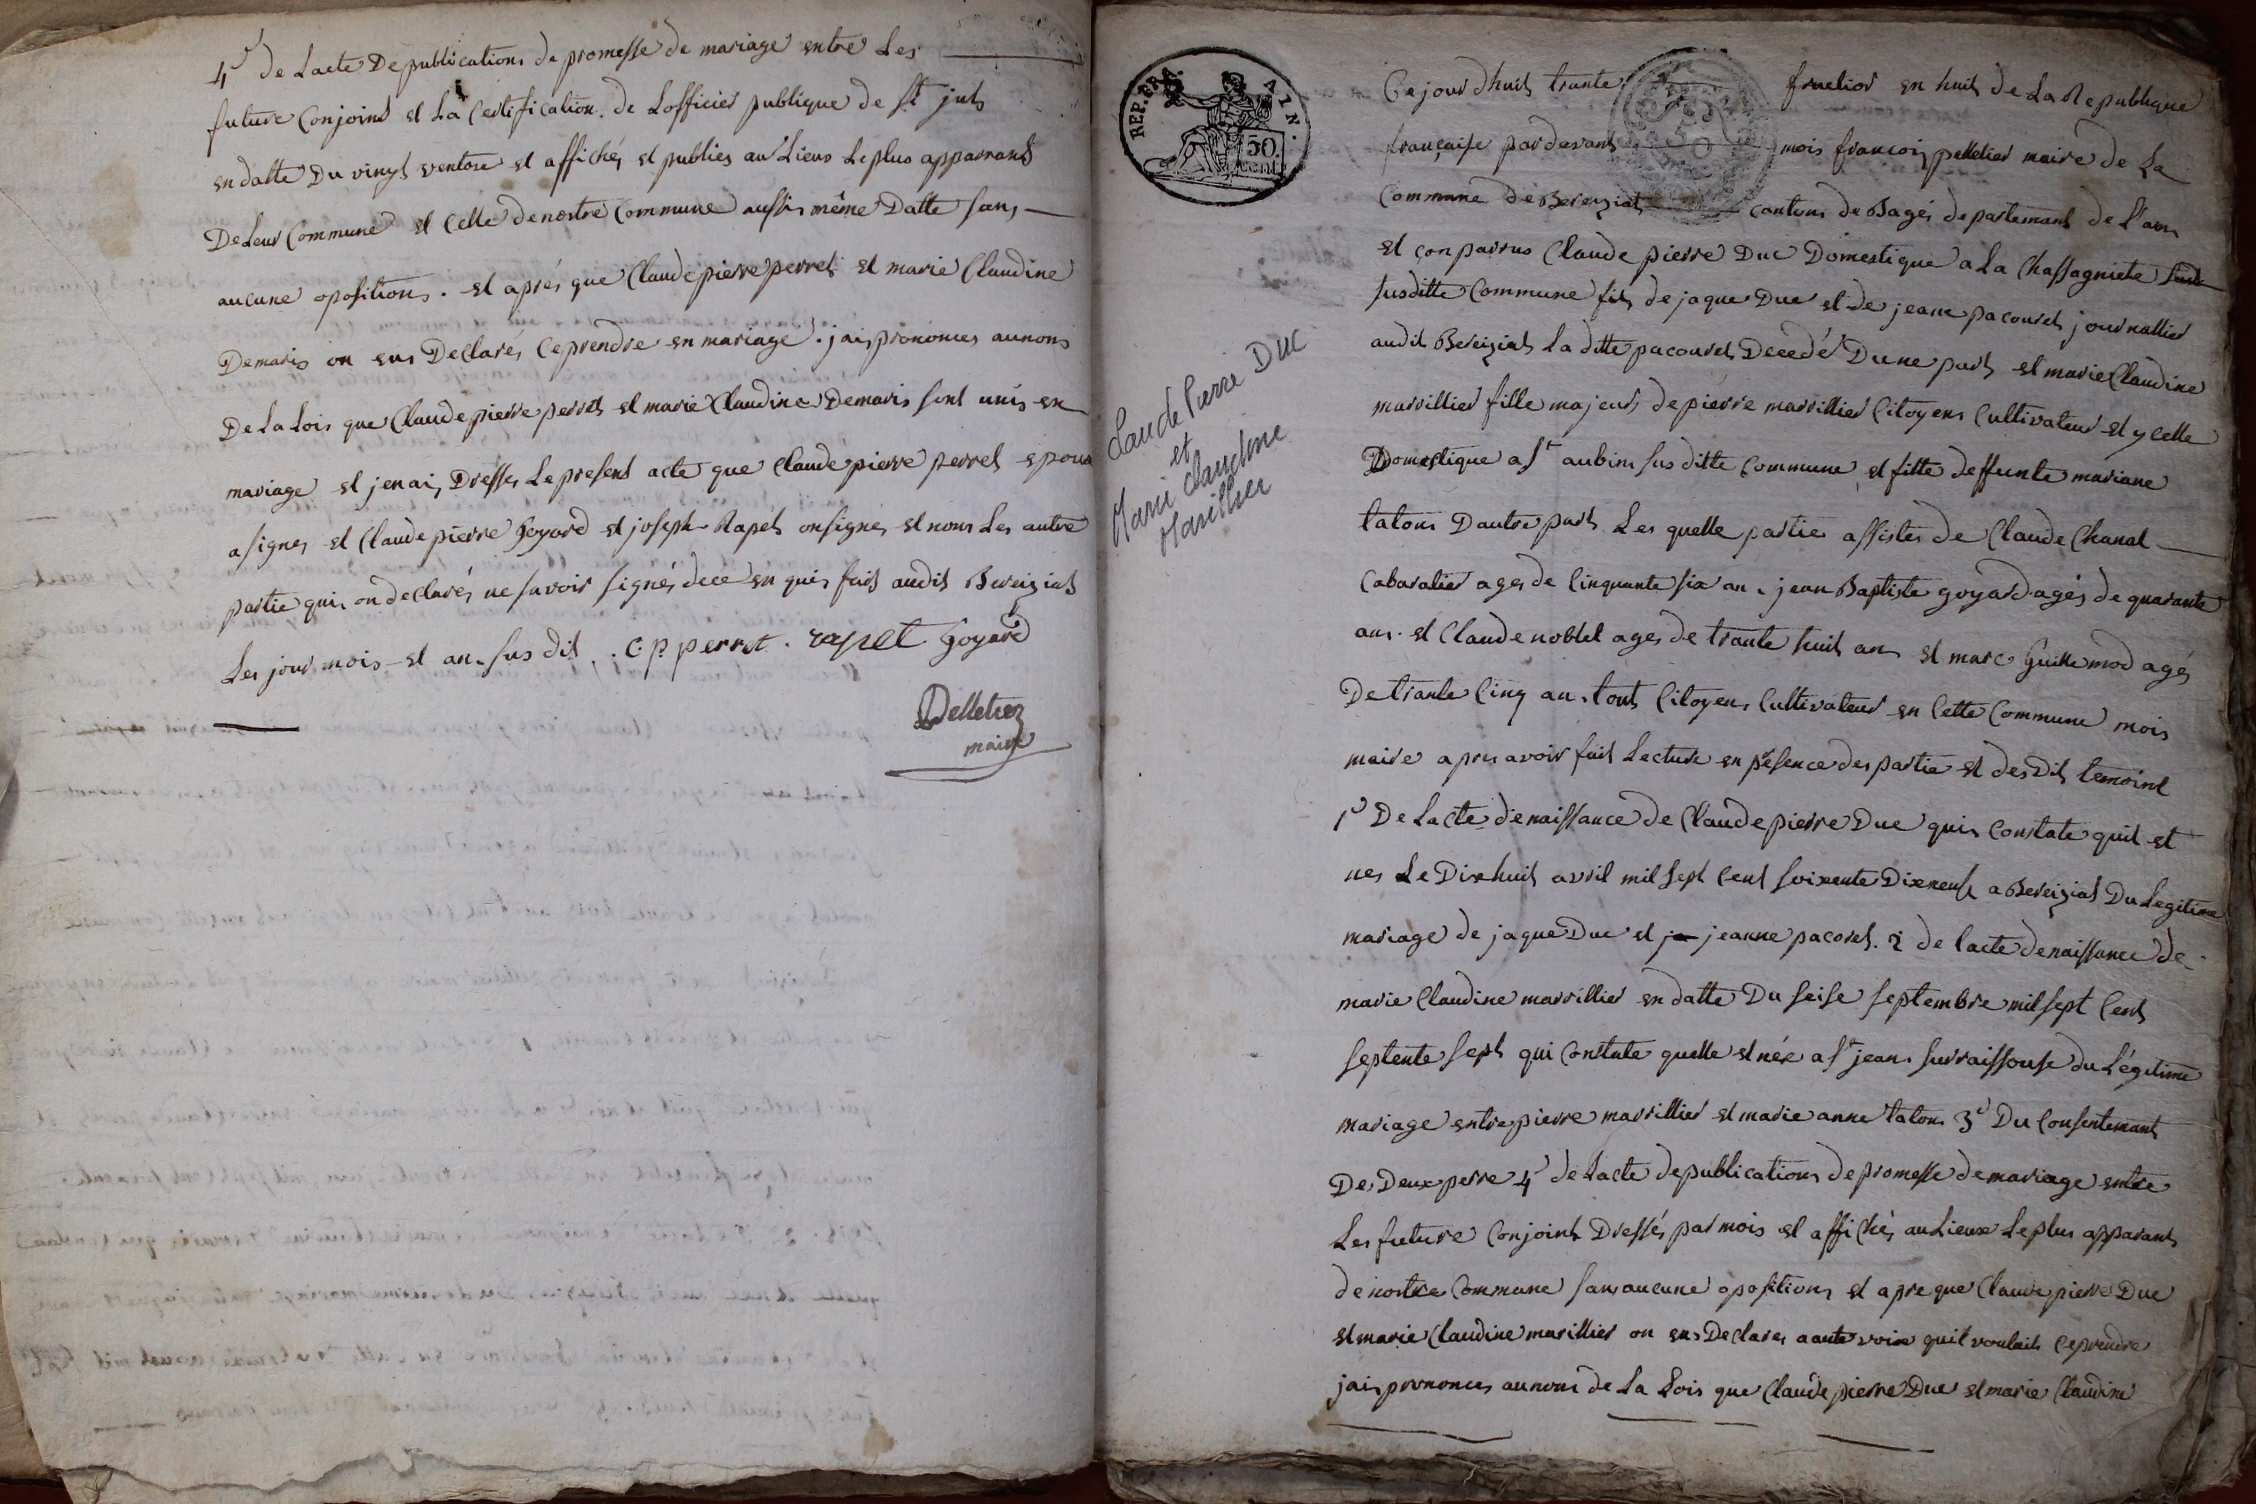 4e de Lacte De publications de promesse de mariage entre Les
future conjoint et La Certification de Lofficier publique de St just
en datte Du vingt ventose et affichés et publies au Lieux Le plus apparrant
De Leur Commune et Celle de nostre Commune aussi même Datte sans
aucune opositions. et aprés que Claude pierre perret et marie Claudine
Demaris on eus Declarés Ce prendre en mariage. jais prononces aunons
De La Lois que Claude pierre perret et marie Claudine Demaris sont unis en
mariage et jen ais Dresses Le present acte que Claude pierre perret epoux
a signes et Claude pierre Goyard et joseph Rapet on signes et nous Les autre
partie qui on declarés ne savoir signés de ce en quis fait audit Bereiziat
Les jour mois et an susdit . C. P. perret . rapet Goyard
Pelletier
maire
REP. FRA. 50. cent. ATN.
Ce jour dhuit trante fructior en huit de La Republique
française par devant mois françois pelletier maire de La
Commune de Bereiziat cantons de Bagés departemant de l'ain
et conparrus Claude pierre Duc Domestique a La Chassagniete
susditte Commune fils de jaque Duc et de jeane pacouret journallier
audit Bereiziat La ditte pacouret Decedé Dune part et marie Claudine
marrillier fille majeure de piérre marrillier Citoyens Cultivateur et y celle
Domestique a St aubin susditte Commune et fille deffunte mariane
tatons Dautre part Les quelle partie assistes de Claude Chanal
Cabaratier ages de Cinquante six an. jean Baptiste goyard agés de quarante
ans. et Claude noblet ages de trante huit ans et marc Guillemod agés
De trante Cinq an. tout Citoyens Cultivateur en Cette Commune mois
maire apres avoir fait Lecture en présence des partie et desdit temoint
1e De Lacte de naissance de Claude pierre Duc quis Constate quil et
nes Le Dix huit avril mil sept Cent soixente Dixneuf a Bereiziat Du Legitime
mariage de jaque Duc et jeanne pacoret. 2 de lacte de naissance de
marie Claudine marrillier en datte Du seise septembre mil sept Cent
septente sept qui Constate quelle et née a St jean surraissouse du Légitime
mariage entre pierre marrillier et marie anne tatons 3e Du Consentemant
Des Deux perre 4e de Lacte de publications de promesse de mariage entre
Les future Conjoint Dressés par mois et affichés au Lieux Le plus apparant
de nostre Commune sans aucune opositions et apre que Claude pierre Duc
et marie Claudine marillier on eus Declares a aute voix quil voulait Ce prendre
jais prononces aunons de La Lois que Claude pierre Duc et marie Claudine
Claude Pierre Duc
et
Marie Claudine
Marillier